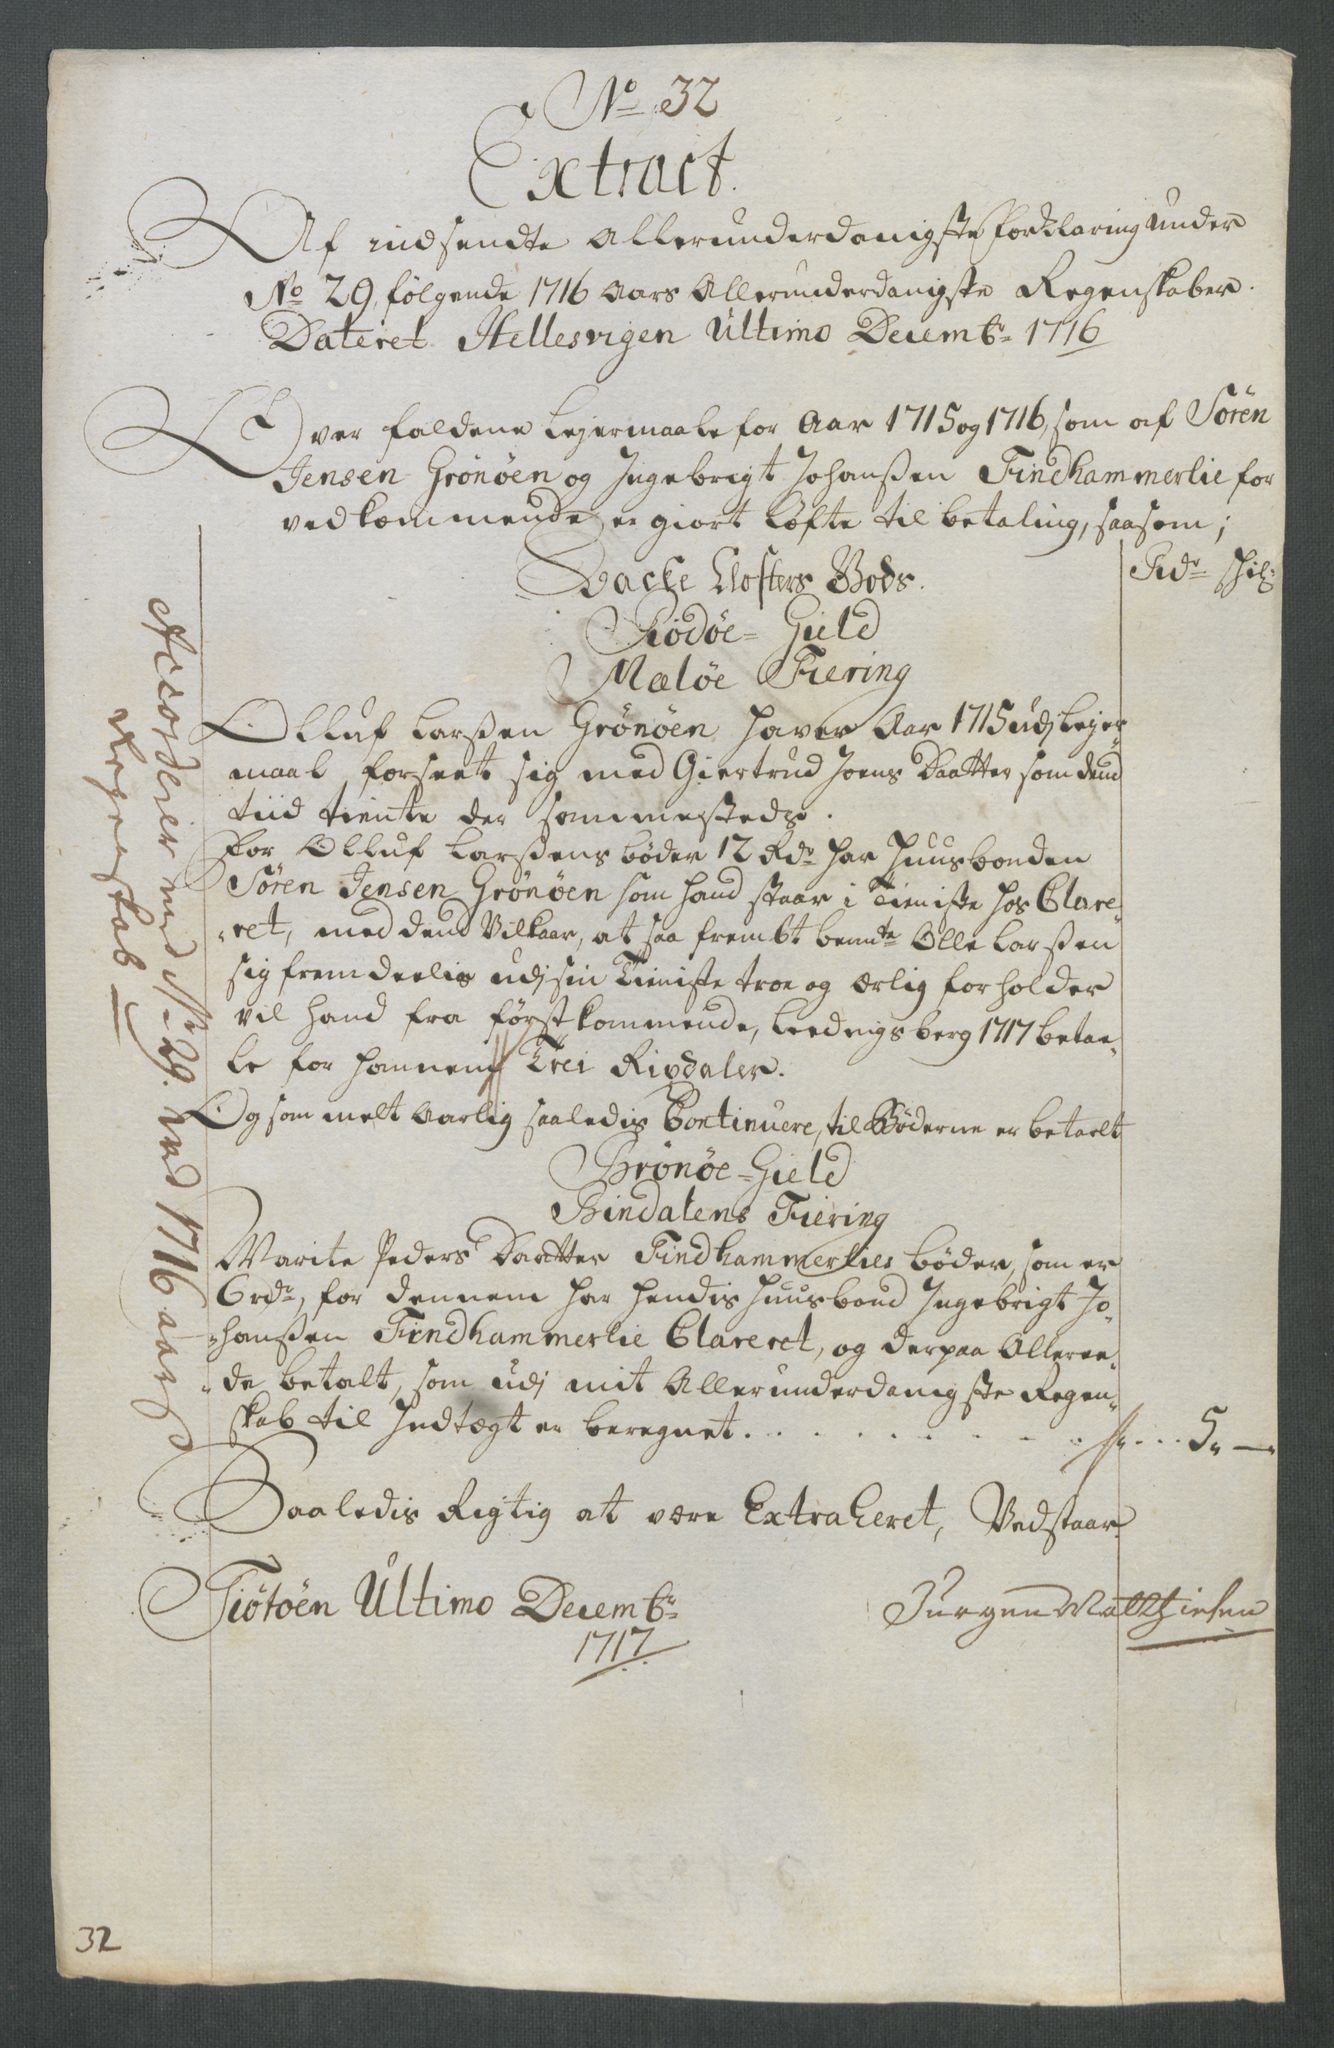 No 32
Extract.
Af indsendte Allerunderdanigste forklaring under
No 29, følgende 1716 Aars Allerunderdanigste Regenskaber.
Dateret Hellesvigen Ultimo Decembr 1716
Over faldene Lejermaale for Aar 1715 og 1716, som af Sören
Jensen Grönöen og Ingebrigt Johanßen Findhammerlie for
vedkommende er giort Løfte til betaling, saasom;
Rdr
Bache Closters Gods.
Rödöe-Gield
Meløe Fiering
Olluf Larßen Grönöen haver Aar 1715 udj Lejer
maal forseet sig med Giertrud Joens Daatter som dend
tiid tiente der sammesteds.
For Olluf Larßens bøder 12 Rdr har Huusbonden
Sören Jensen Grönöen som hand staar i Tieniste hos Clare-
ret, med dend Vilkaar, at saa frembt bemte Olle Larßen
sig fremdeelis udj sin Tieniste troe og ærlig forholder
vil hand fra førstkommende, Leedingsberg 1717 betaa-
le for hannem Trei Rixdaler.
Og som melt Aarlig saaledis Continuere, til Bøderne er betaelt
Brönöe-Gield
Bindalens Fiering
Marite Peders Daatter Findhammerlies bøder, som er
6 rdr, for dennem har hendis Huusbond Ingebrigt Jo-
hanßen Findhammerlie Clareret, og derpaa Alleree-
de betalt, som udj mit Allerunderdanigste Regen-
skab til Indtægt er beregnet. . . . . . . . . . 5 " —"
Saaledis Rigtig at være Extraheret, Vedstaar
Tiötöen Ultimo Decembr
1717
Jürgen Matthiesen
Accorderer med No 29. ved 1716 aars
Regenskab
32